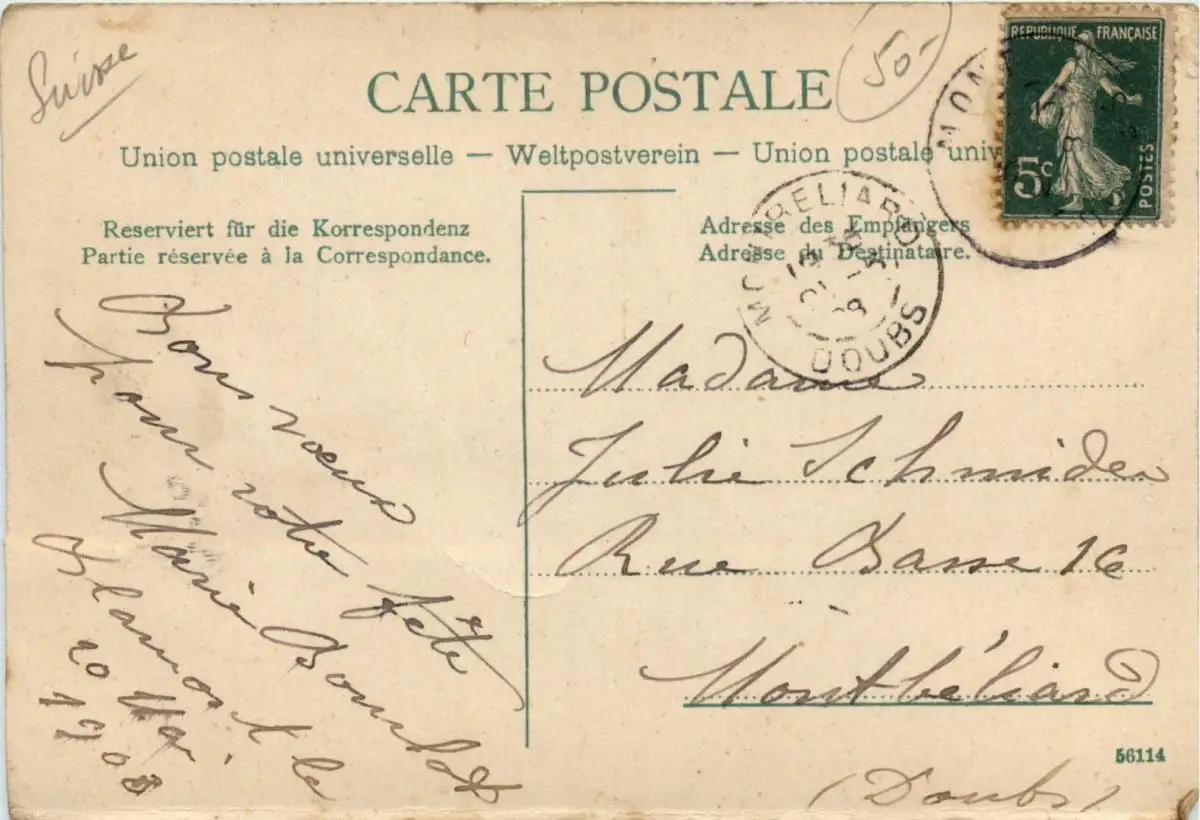 Suisse
50-
CARTE POSTALE
Union postale universelle — Weltpostverein — Union postale univ
RÉPUBLIQUE FRANÇAISE
5c
POSTES
MONTBÉLIARD
DOUBS
Reserviert für die Korrespondenz
Partie réservée à la Correspondance.
Bons vœux
pour votre fête
Marie
Blamont le
20 Mai
1908
Adresse des Empfängers
Adresse du Destinataire.
Madame
Julie Schmider
Rue Basse 16
Montbéliard
(Doubs)
56114